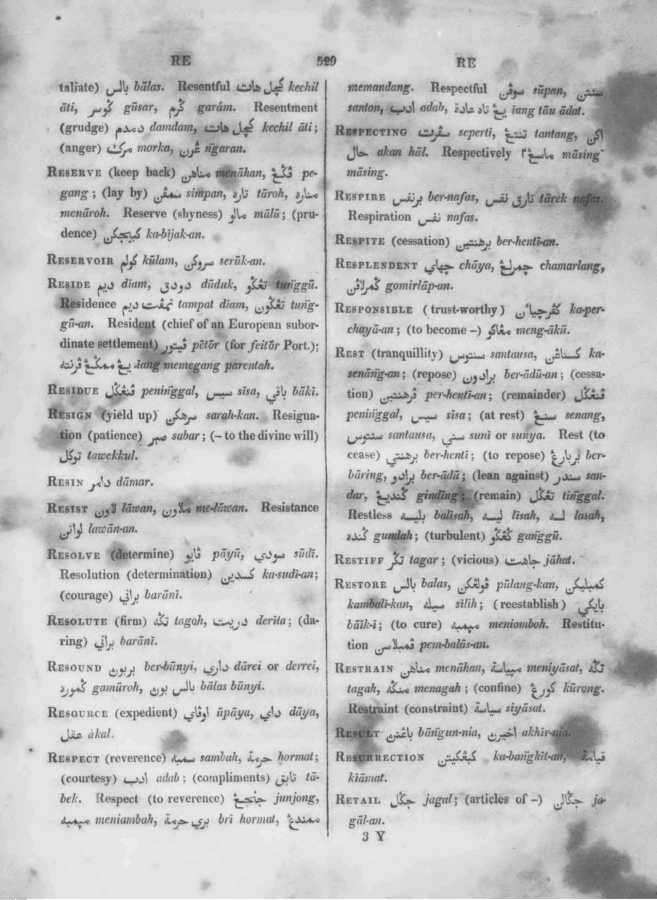 RE 529 RE
taliate) بالس bālas. Resentful کچل هات kechil
āti, ڬوسر gūsar, ڬرم garám. Resentment
(grudge) دمدم damdam, کچل هات kechil āti;
(anger) مرک morka, ڠرن n͡garan.
RESERVE (keep back) مناهن menāhan, ڤڬڠ pe-
gang; (lay by) سمڤن simpan, تاره tāroh, مناره
menāroh. Reserve (shyness) مالو mālū; (pru-
dence) کبيجکن ka-bījak-an.
RESERVOIR کولم kūlam, سروکن serūk-an.
RESIDE ديم diam, دودق dūduk, تڠڬو tun͡ggū.
Residence تمڤت ديم tampat diam, تڠڬون tun͡g-
gū-an. Resident (chief of an European subor-
dinate settlement) ڤيتور pētōr (for feitōr Port.);
يڠ ممڬڠ ڤرنته iang memegang parentah.
RESIDUE ڤنڠڬل penin͡ggal, سيس sīsa, باقي bāki.
RESIGN (yield up) سرهکن sarah-kan. Resigna-
tion (patience) صبر sabar; (– to the divine will)
توکل tawekkul.
RESIN دامر dāmar.
RESIST لاون lāwan, ملاون me-lāwan. Resistance
لوانن lawān-an.
RESOLVE (determine) ڤايو pāyū, سودي sūdī.
Resolution (determination) کسدين ka-sudī-an;
(courage) براني barānī.
RESOLUTE (firm) تڬه tagoh, دريت derīta; (da-
ring) براني barānī.
RESOUND بربون ber-būnyi, داري dārei or derrei,
ڬموره gamūroh, بالس بون bālas būnyi.
RESOURCE (expedient) اوڤاي ūpāya, داي dāya,
عقل ākal.
RESPECT (reverence) سمبه sambah, حرمة hormat;
(courtesy) ادب adab; (compliments) تابق tā-
bek. Respect (to reverence) جنجڠ junjong,
ميمبه meniambah, بري حرمة brī hormat, ممندڠ
memandang. Respectful سوڤن sūpan, سنتن
santon, ادب adab, يڠ تاه عادة iang tāu ādat.
RESPECTING سڤرت sepertī, تنتڠ tantang, اکن
حال akan hāl. Respectively ماسڠ٢ māsing-
māsing.
RESPIRE برنفس ber-nafas, تارق نفس tārek nafas.
Respiration نفس nafas.
RESPITE (cessation) برهنتين ber-hentī-an.
RESPLENDENT چهاي chāya, چمرلڠ chamarlang,
ڬمرلاڤن gomirlāp-an.
RESPONSIBLE (trust-worthy) کڤرچيان ka-per-
chayā-an; (to become –) مڠاکو meng-ākū.
REST (tranquillity) سنتوس santausa, کسناڠن ka-
senān͡g-an; (repose) برادون ber-ādū-an; (cessa-
tion) ڤرهنتين per-hentī-an; (remainder) ڤنڠڬل
penin͡ggal, سيس sīsa; (at rest) سنڠ senang,
سنتوس santausa, سني sunī or sunya. Rest (to
cease) برهنتي ber-hentī; (to repose) بربارڠ ber-
bāring, برادو ber-ādū; (lean against) سندر san-
dar, ڬنديڠ ginding; (remain) تڠڬل tin͡ggal.
Restless بليسه balīsah, ليسه līsah, لسه lasah,
ڬنده gundah; (turbulent) ڬڠڬو gan͡ggū.
RESTIFF تڬر tagar; (vicious) جاهت jāhat.
RESTORE بالس balas, ڤولڠکن pūlang-kan, کمبليکن
kambalī-kan, سيله sīlih; (reestablish) بايکي
bāik-ī; (to cure) ميمبه meniomboh. Restitu-
tion ڤمبلاسن pem-balās-an.
RESTRAIN مناهن menāhan, مپياسة meniyāsat, تڬه
tagah, منڬه menagah; (confine) کورڠ kūrong.
Restraint (constraint) سياسة siyāsat.
RESULT باڠنن bān͡gun-nia, اخيرن akhir-nia.
RESURRECTION کبڠکيتن ka-ban͡gkīt-an, قيامة
kiāmat.
RETAIL جڬل jagal; (articles of –) جڬالن ja-
gāl-an.
3 Y